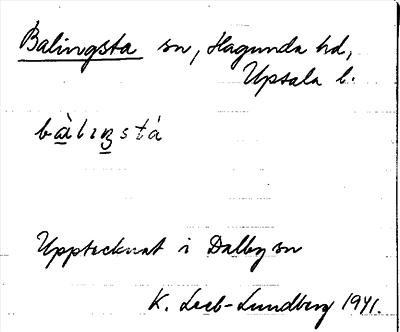 Balingsta sn, Hagunda hd,
Upsala l.
bàlıŋstá
Upptecknat i Dalby sn
K. Leeb-Lundberg 1941.